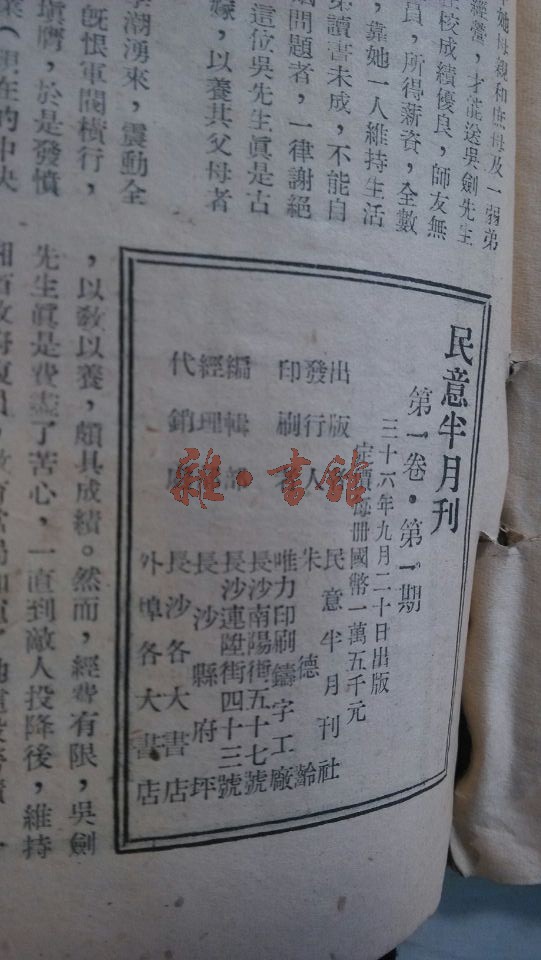 她母親和庶母及一弱弟
經營，才能送吳劍先生
校成績優良，師友無
員，所得薪砉，全數
靠她一人維持生活
讀書未成，不能自
問題者，一律謝絕
這位吳先生眞是古
嫁，以養其父母者
潮湧來，震動全
旣恨軍閥橫行，
填膺，於是發憤
現在的中央
民意半月刊
第一卷．第一期
三十六年九月二十日出版
定價每册國幣一萬五千元
出版者 民意半月刊社
發行人 朱德齡
印刷者 唯力印刷鑄字工廠
長沙南陽街五十七號
編輯部 長沙連陞街四十三號
經理部 長沙縣府坪
代銷處 長沙各大書店
外埠各大書店
，以敎以養，頗具成績。然而，經費有限，吳劍
先生眞是費盡了苦心，一直到敵人投降後，維持
雜·書館